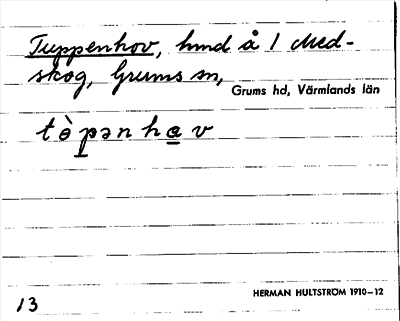 Tuppenhov, hmd å 1 Med-
skog, Grums sn,
Grums hd, Värmlands län
tè̀pənhav
HERMAN HULTSTRÖM 1910–12
13